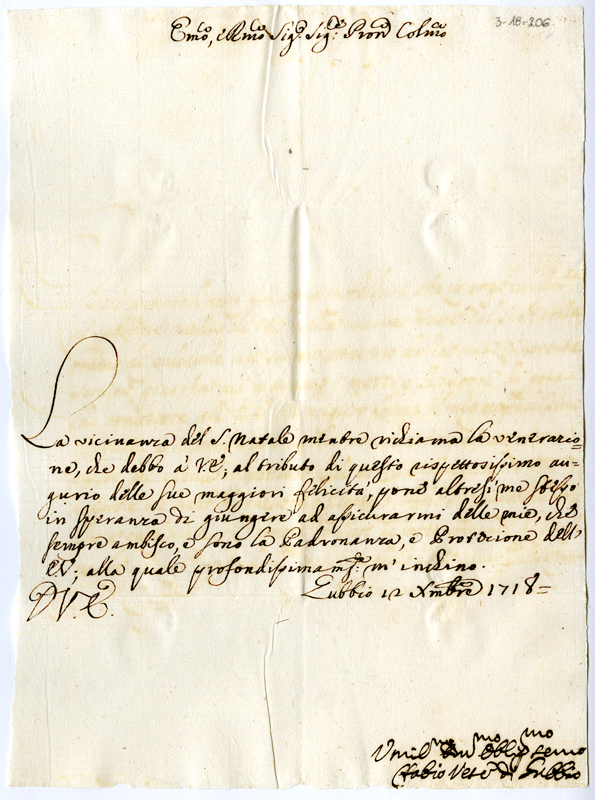 3-18-206
Emo, e Rmo Sigr. Sigr. Pron Colmo
La vicinanza del S. Natale mentre richiama la venerazio=
ne, che debbo à V.E., al tributo di questo rispettosissimo au=
gurio delle sue maggiori felicità, pone altresì me stesso
in speranza di giungere ad assicurarmi delle mie, che
sempre ambisco, e sono la Padronanza, e Protezione dell'
E.V.; alla quale profondissimamte. m'inchino.
Gubbio 12 Xmbre 1718=
D V.E.
Umilmo Devmo Obligmo servo
Fabio Vesc. di Gubbio